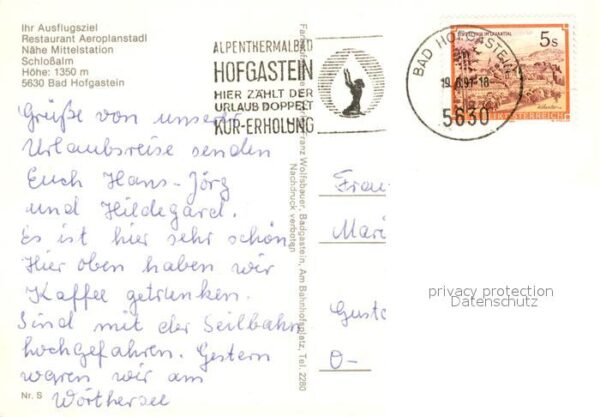 Ihr Ausflugsziel
Restaurant Aeroplanstadl
Nähe Mittelstation
Schloßalm
Höhe: 1350 m
5630 Bad Hofgastein
ALPENTHERMALBAD
HOFGASTEIN
HIER ZÄHLT DER
URLAUB DOPPELT
KUR-ERHOLUNG
BAD HOFGASTEIN
5630
5s
Grüße von unserer
Urlaubsreise senden
Euch Hans-Jörg
und Hildegard.
Es ist hier sehr schön
Hier oben haben wir
Kaffee getrunken.
Sind mit der Seilbahn
hochgefahren. Gestern
waren wir am
Wörthersee
Nr. S
Franz Wolfsbauer, Badgastein, Am Bahnhofsplatz, Tel. 2280
Nachdruck verboten
Frau
Mari
Gusto
O-
privacy protection
Datenschutz